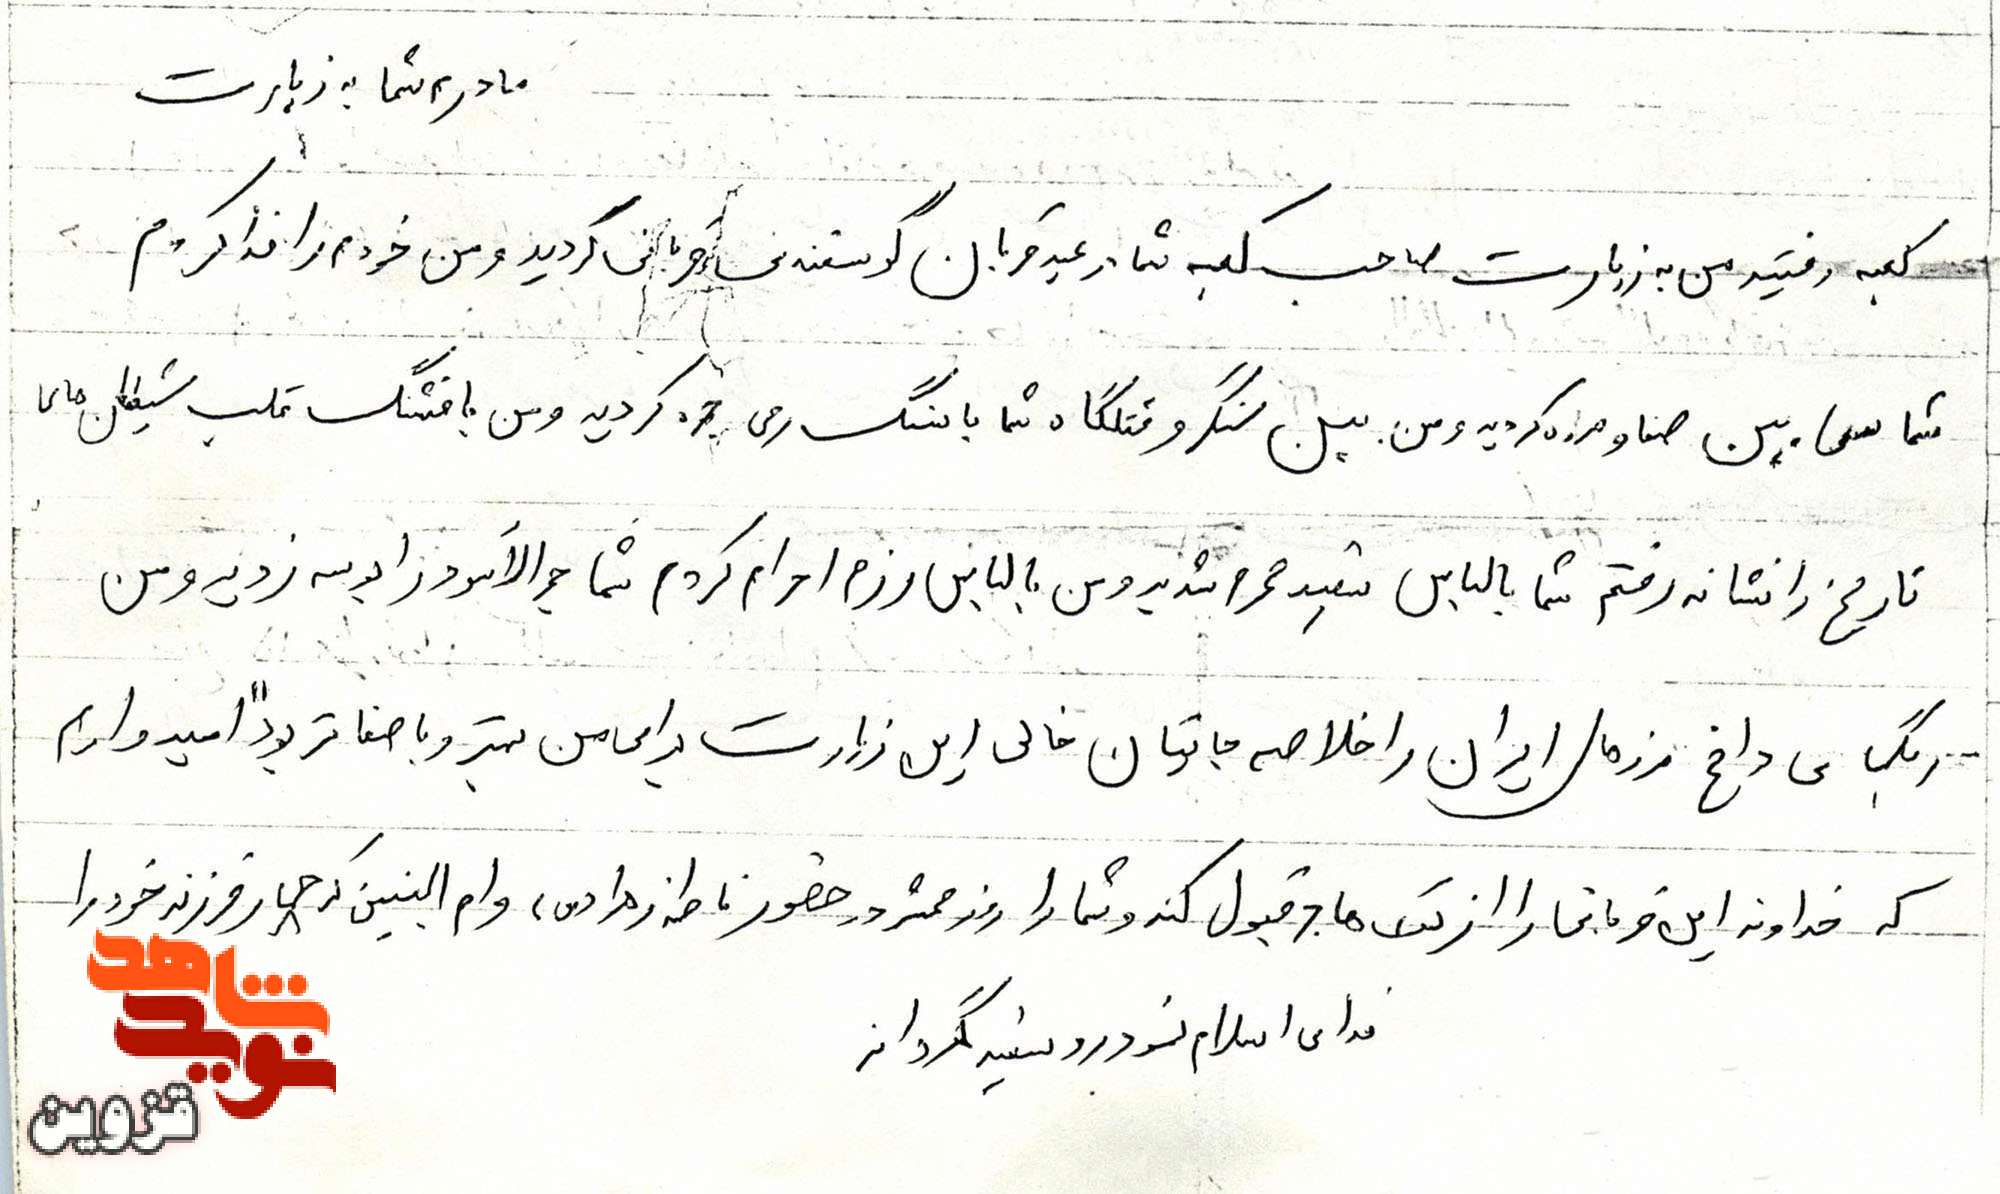 مادرم شما به زیارت
کعبه رفتید من به زیارت صاحب کعبه شما در عید قربان گوسفندی قربانی کردید و من خودم را فدا کردم
شما سعی بین صفا و مروه کردید و من بین سنگر و قتلگاه شما با سنگ رمی جمره کردید و من با فشنگ قلب شیطان های
تاریخ را نشانه رفتم شما با لباس سفید محرم شدید و من با لباس رزم احرام کردم شما حجرالاسود را بوسه زدید و من
ریگهای داغ مرزهای ایران را خلاصه جایتان خالی این زیارت برای من بهتر و با صفاتر بود" امیدوارم
که خداوند این قربانی را از تک هاجر قبول کند و شما را روز محشر در حضور فاطمه زهرا (س) و ام البنین که چهار فرزند خود را
فدای اسلام نمود رو سفید گرداند
شاهد
نوید
قزوین